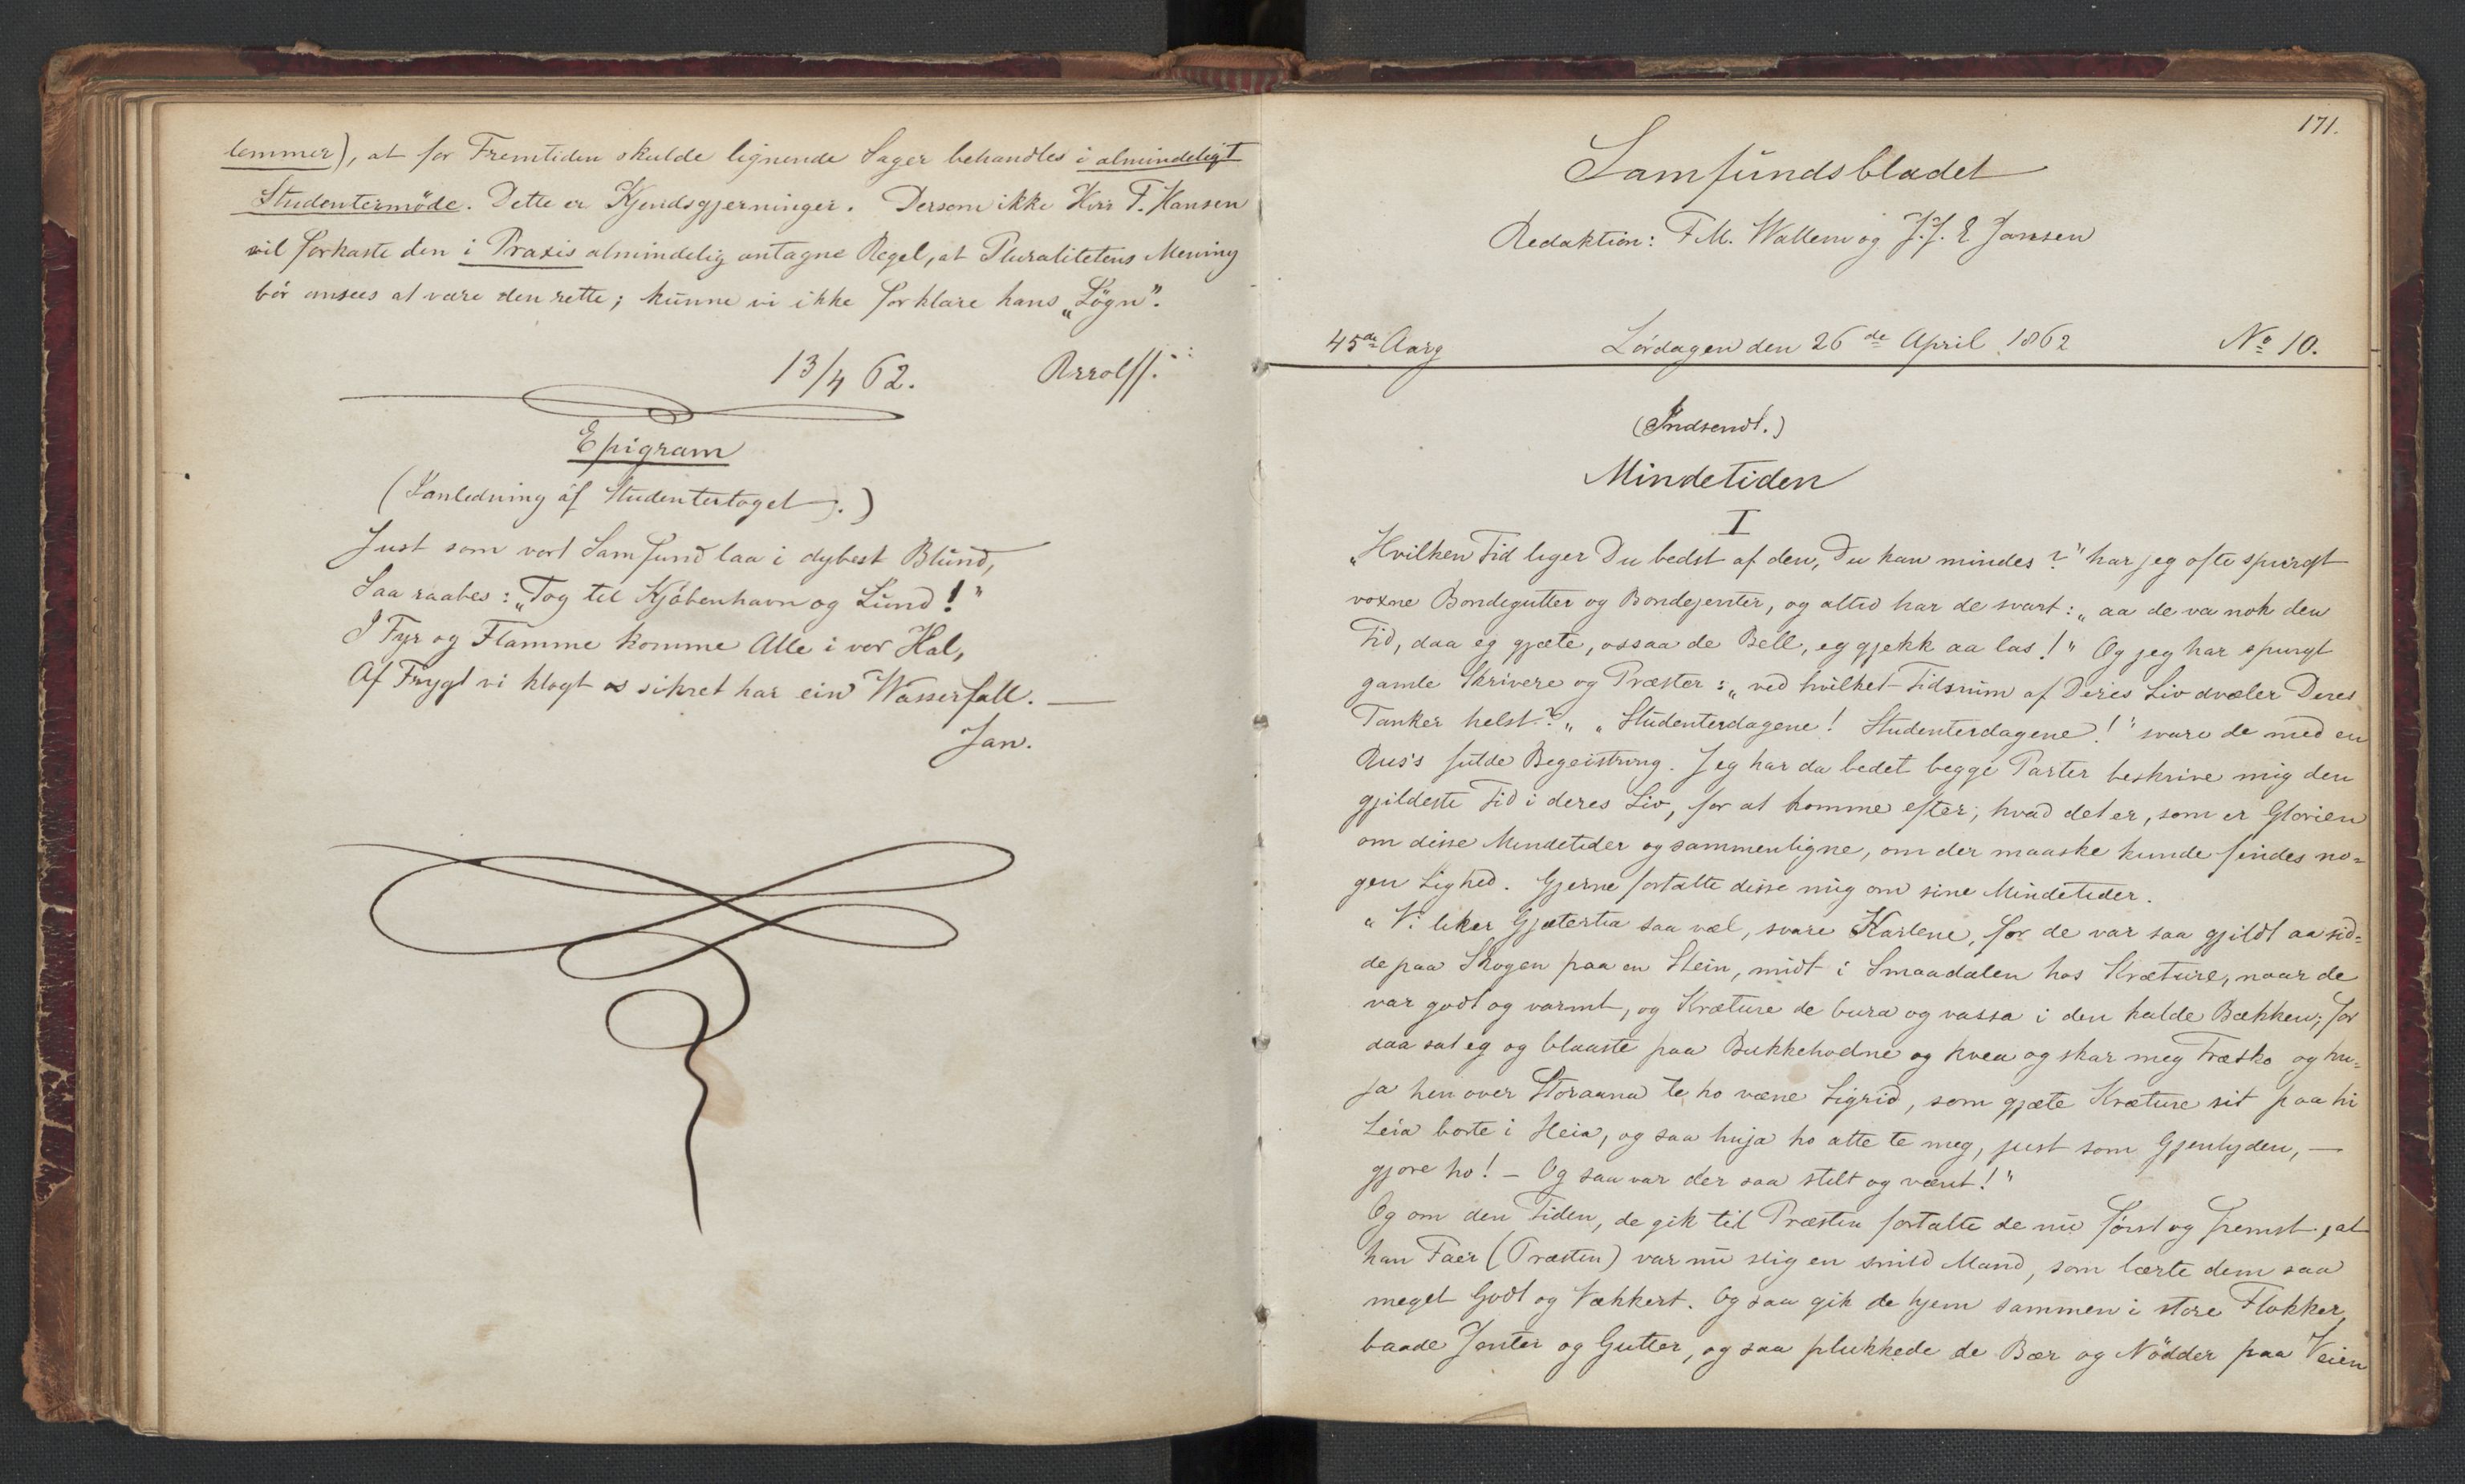 lemmer), at for Fremtiden skulde lignende Sager behandles i almindeligt
Studentermöde. Dette er Kjendsgjerninger. Dersom ikke Herr F. Hansen
vil forkaste den i Praxis almindelig antagne Regel, at Pluralitetens Mening
bör ansees at være den rette; kunne vi ikke forklare hans „Lögn".
13/4 62.
Epigram
(I anledning af Studentertoget.)
Just som vort Samfund laa i dybest Blund,
Saa raabes: „Tog til Kjöbenhavn og Lund!"
I Fyr og Flamme komme Alle i vor Hal,
Af Frygt vi klogt os sikret har ein Wasserfall. —
Jan.
171.
Samfundsbladet
Redaktion: F.M. Wallem og J.J. E Jansen
45de Aarg Lørdagen den 26de April 1862 No 10.
(Indsendt.)
Mindetiden
I
„Hvilken Tid liger Du bedst af den, Du kan mindes?" har jeg ofte spurgt
voxne Bondegutter og Bondejenter, og altid har de svart: „aa de va nok den
Tid, daa eg gjæte, ossaa de Bell, eg gjekk aa las!" Og jeg har spurgt
gamle Skrivere og Præster: „ved hvilket Tidsrum af Deres Liv dvæler Deres
Tanker helst?" „Studenterdagene! Studenterdagene!" svare de med en
Rus's fulde Begeistring. Jeg har da bedet begge Parter beskrive mig den
gjildeste Tid i deres Liv, for at komme efter, hvad det er, som er Glorien
om disse Mindetider og sammenligne, om der maaske kunde findes no=
gen Lighed. Gjerne fortalte disse mig om sine Mindetider.
„Vi liker Gjætertia saa væl, svare Karlene, for de var saa gjildt aa sid=
de paa Skogen paa en Stein, midt i Smaadalen hos Kræture, naar de
var godt og varmt, og Kræture de bura og vassa i den kalde Bækken; for
daa sat eg og blaaste paa Bukkehodne og kvea og skar meg Træsko og hu=
ja hen over Storaana te ho væne Sigrid, som gjæte Kræture sit paa hi
Leia borte i Heia, og saa huja ho atte te meg, just som Gjenlyden, —
gjore ho! — Og saa var der saa stilt og vænt!"
Og om den Tiden, de gik til Præsten fortalte de nu først og fremst, at
han Faer (Præsten) var nu slig en snild Mand, som lærte dem saa
meget Godt og Vakkert. Og saa gik de hjem sammen i store Flokker,
baade Jenter og Gutter, og saa plukkede de Bær og Nödder paa Veien